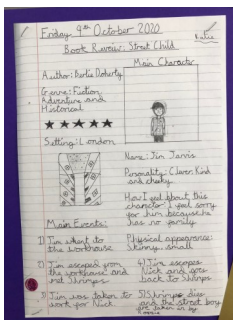 Friday 9th October 2020
Book Review: Street Child
Main Character
Author: Berlie Doherty
Genre: Fiction,
Adventure and
Historical
Setting: London
Name: Jim Jarvis
Personality: Clever, Kind
and cheeky
How I feel about this
character: I feel sorry
for him because he
has no family
Physical appearance:
Skinny, small
Main Events:
1) Jim went to
the workhouse
2) Jim escaped from
the workhouse and
met Shrimps
3) Jim was taken to
work for Nick
4) Jim escapes
Nick and goes
back to Shrimps
5) Shrimps dies
and the street boy
are taken in by